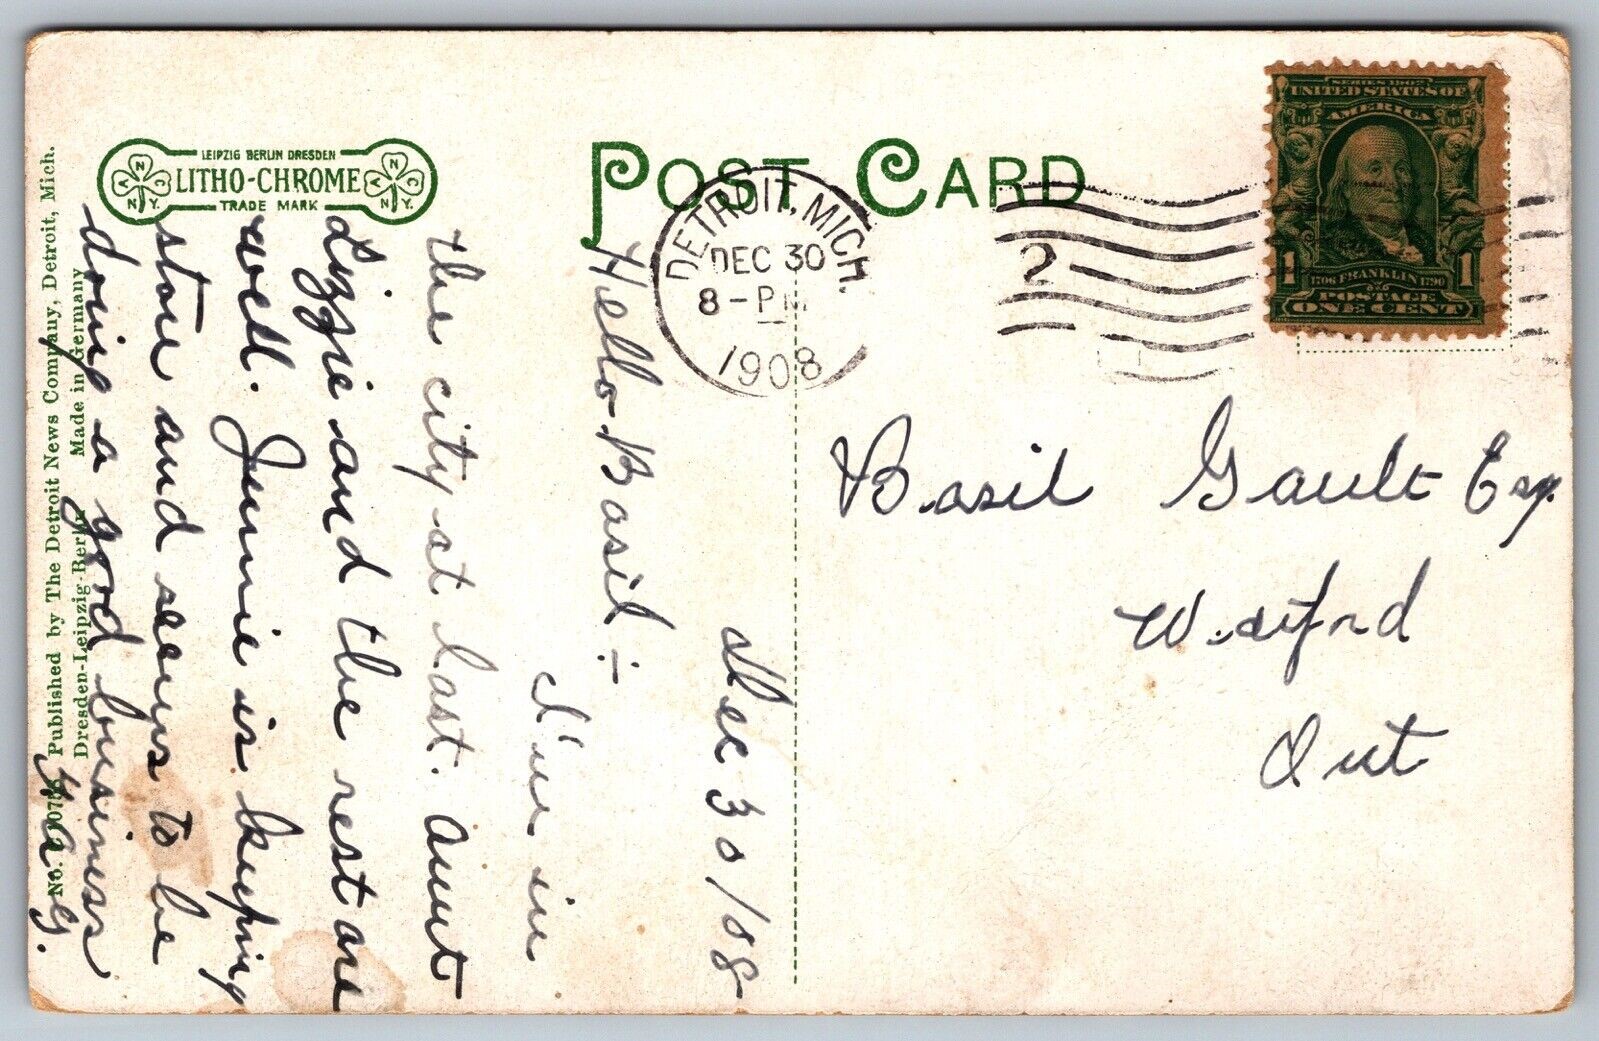 POST CARD
LEIPZIG BERLIN DRESDEN
LITHO-CHROME
TRADE MARK
A N C
N.Y.
A N C
N.Y.
DETROIT, MICH.
DEC 30
8-PM
1908
2
SERIES 1902
UNITED STATES OF
AMERICA
1 1706 FRANKLIN 1790 1
POSTAGE
ONE CENT
Basil Gault Esq.
Wexford
Ont
Dec 30/08
Hello Basil:-
I'm in
the city at last. Aunt
Lizzie and the rest are
well. Jimmie is keeping
store and seems to be
doing a good business
G.
Published by The Detroit News Company, Detroit, Mich.
Dresden-Leipzig-Berlin Made in Germany